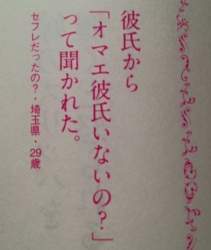 彼氏から
「オマエ彼氏いないの？」
って聞かれた。
セフレだったの？・埼玉県・29歳